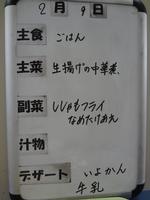 2月9日
主食 ごはん
主菜 生揚げの中華煮
副菜 ししゃもフライ
なめたけあえ
汁物
デザート いよかん
牛乳